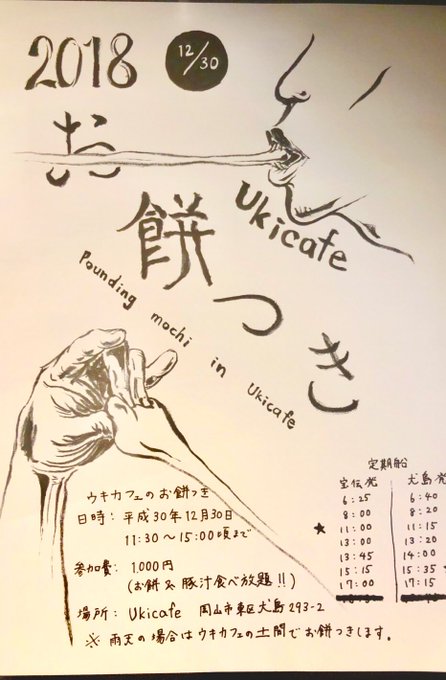 2018 12/30
お餅つき
Ukicafe
Pounding mochi in Ukicafe
ウキカフェのお餅つき
日時: 平成30年12月30日
11:30〜15:00頃まで
参加費: 1,000円
(お餅&豚汁食べ放題!!)
場所: Ukicafe 岡山市東区犬島293-2
※雨天の場合はウキカフェの土間でお餅つきします。
定期船
宝伝発 犬島発
6:25 6:40
8:00 8:20
★ 11:00 11:15
13:00 13:20
13:45 14:00
15:15 15:35
17:00 17:15